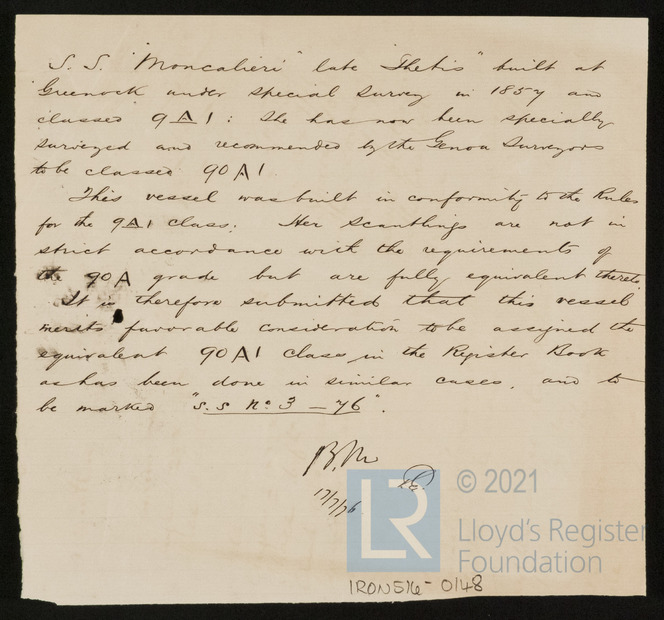 S. S. "Moncalieri" late "Thetis" built at
Greenock under special survey in 1857 and
classed 9 A 1 : She has now been specially
surveyed and recommended by the Genoa Surveyors
to be classed 90 A 1
This vessel was built in conformity to the Rules
for the 9 A 1 class. Her scantlings are not in
strict accordance with the requirements of
the 90 A grade but are fully equivalent thereto.
It is therefore submitted that this vessel
merits favorable consideration to be assigned the
equivalent 90 A 1 class in the Register Book
as has been done in similar cases, and to
be marked "S.S No. 3 - 76".
17/7/76
© 2021
LR
Lloyd's Register
Foundation
IRON516-0148